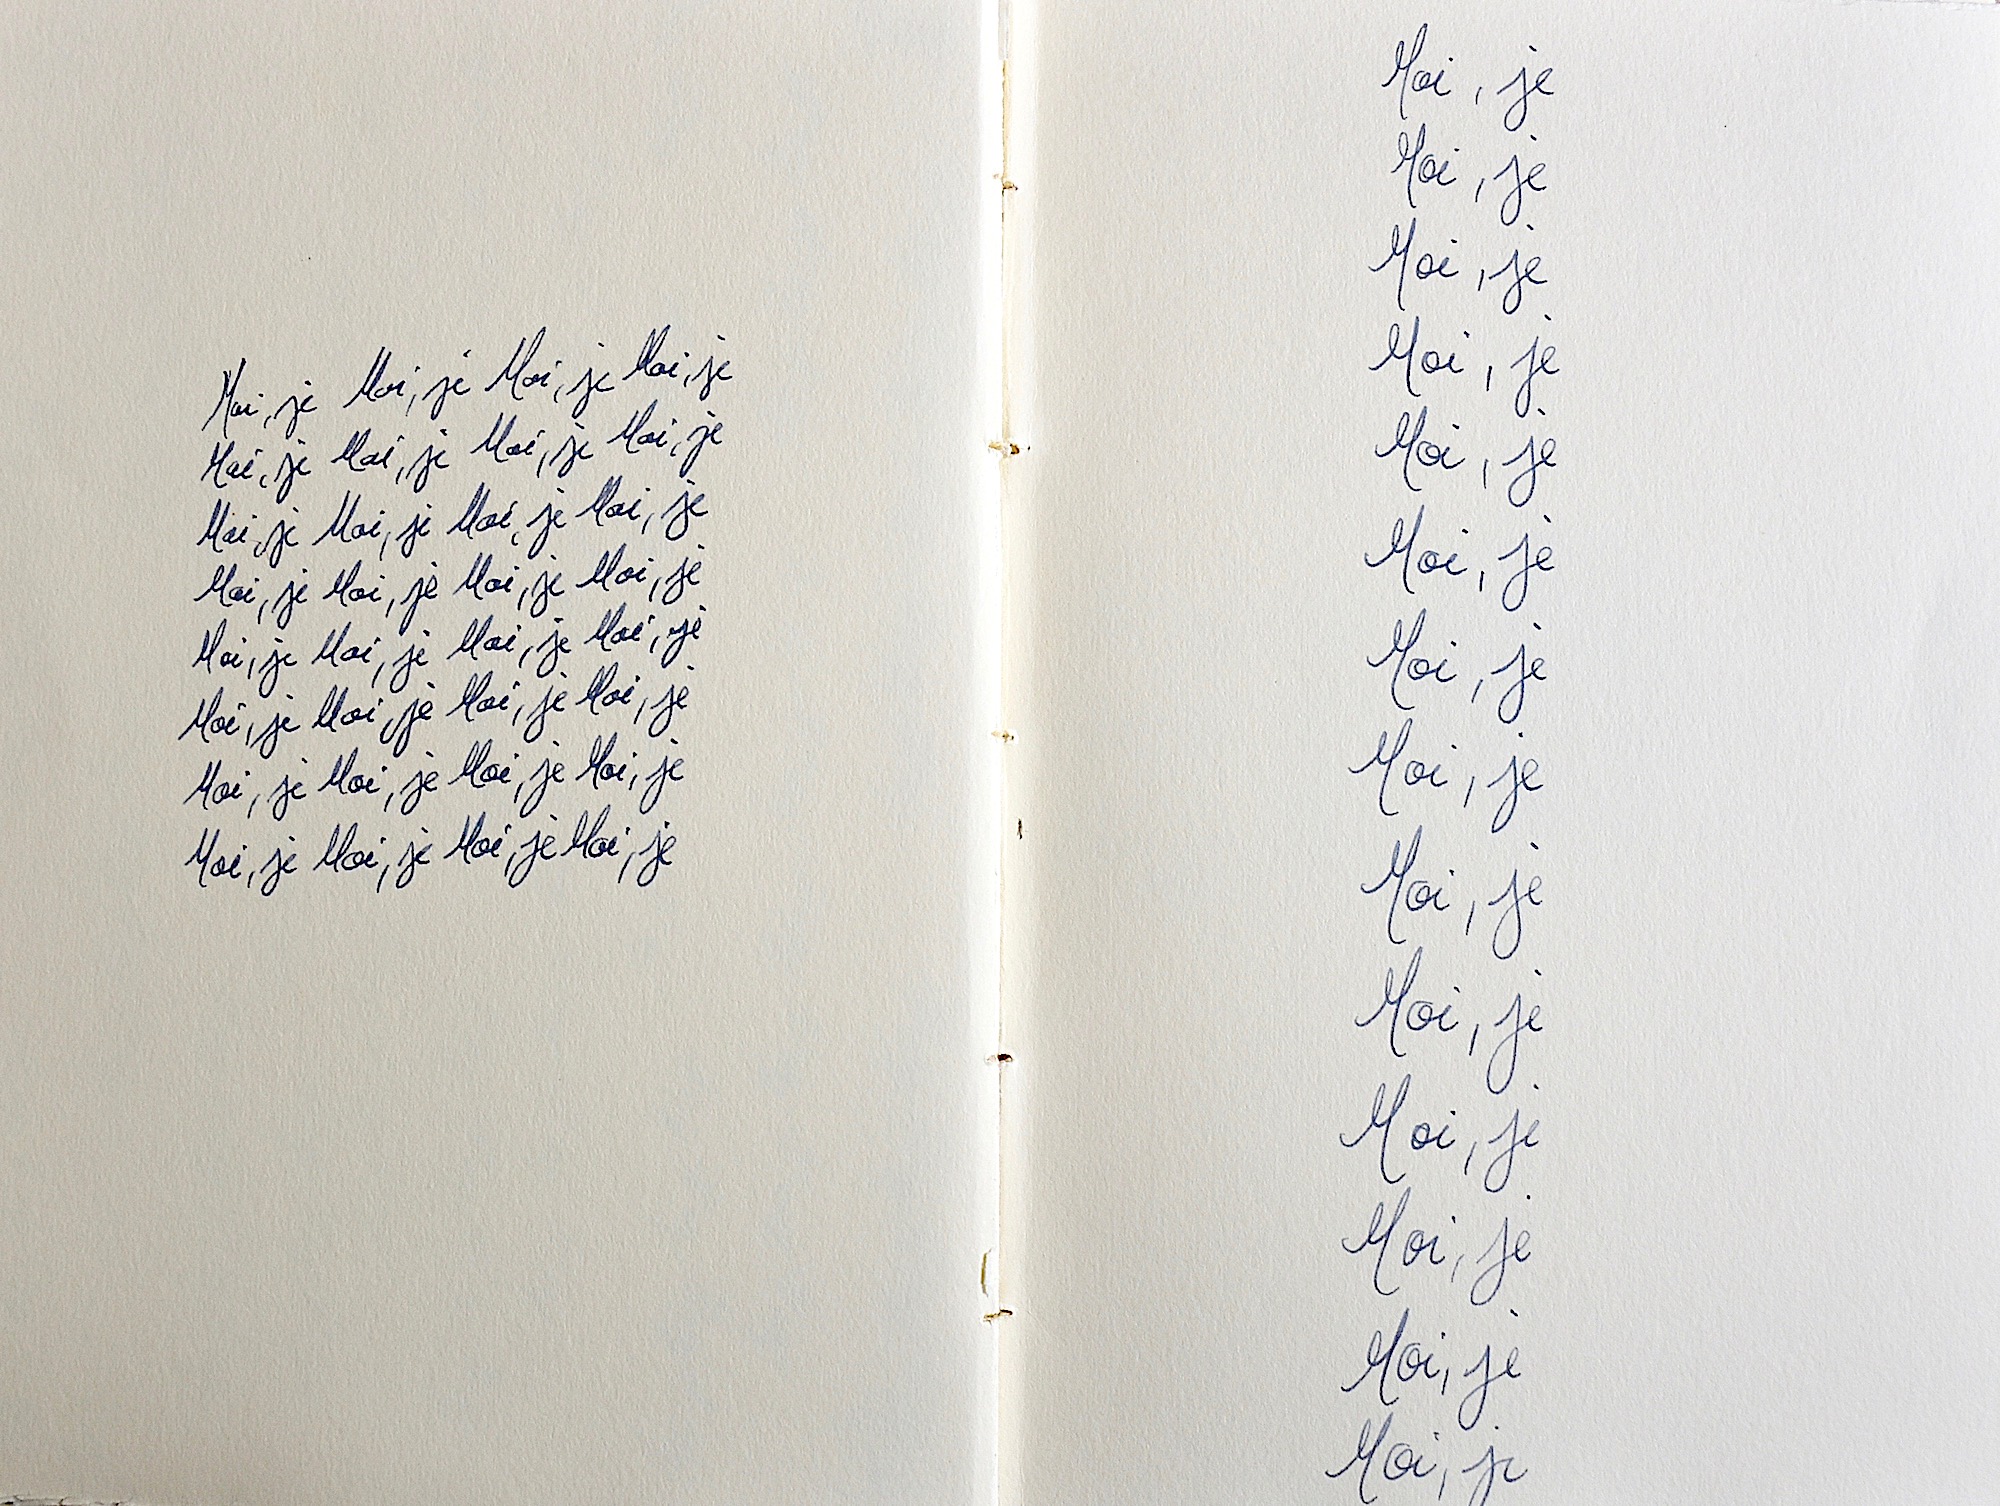 Moi, je Moi, je Moi, je Moi, je
Moi, je Moi, je Moi, je Moi, je
Moi, je Moi, je Moi, je Moi, je
Moi, je Moi, je Moi, je Moi, je
Moi, je Moi, je Moi, je Moi, je
Moi, je Moi, je Moi, je Moi, je
Moi, je Moi, je Moi, je Moi, je
Moi, je Moi, je Moi, je Moi, je
Moi, je
Moi, je
Moi, je
Moi, je
Moi, je
Moi, je
Moi, je
Moi, je
Moi, je
Moi, je
Moi, je
Moi, je
Moi, je
Moi, je